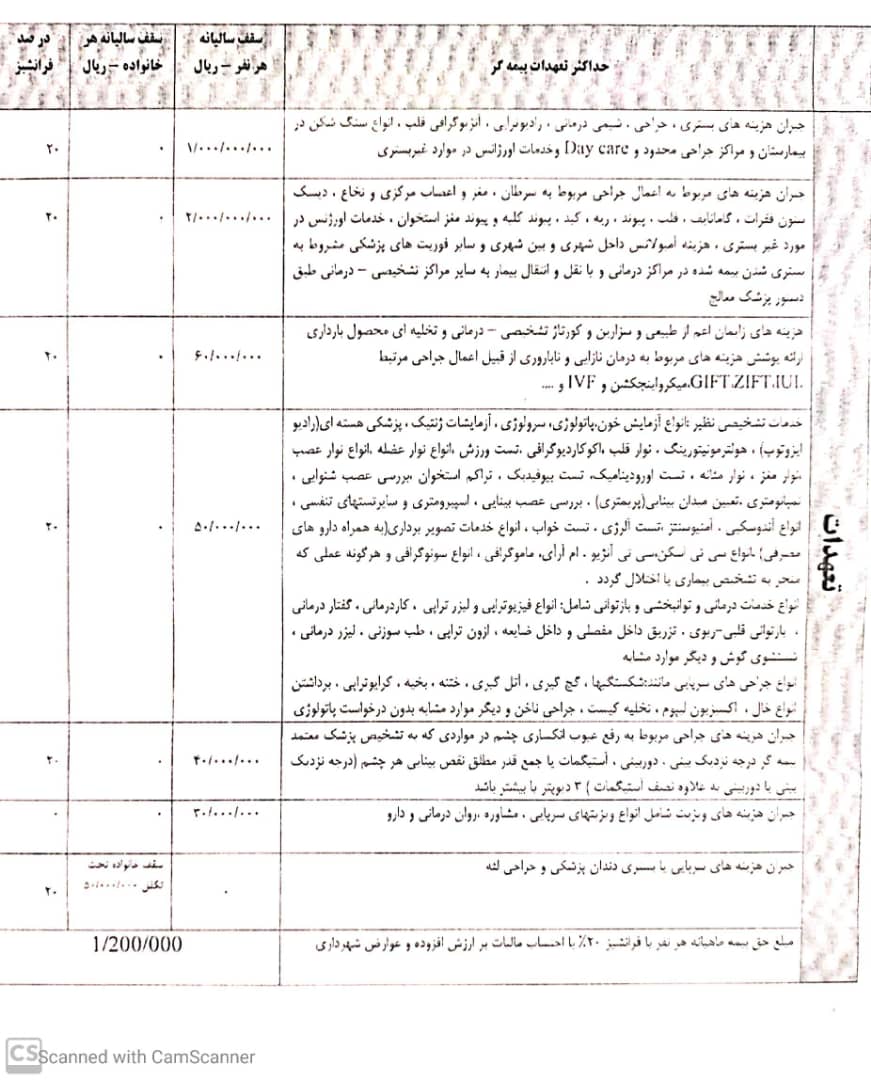 حداکثر تعهدات بیمه گر
سقف سالیانه
هر نفر – ریال
سقف سالیانه هر
خانواده – ریال
در صد
فرانشیز
تعهدات
جبران هزینه های بستری ، جراحی ، شیمی درمانی ، رادیوتراپی ، آنژیوگرافی قلب ، انواع سنگ شکن در
بیمارستان و مراکز جراحی محدود و Day care وخدمات اورژانس در موارد غیربستری
۱/۰۰۰/۰۰۰/۰۰۰
۰
۲۰
جبران هزینه های مربوط به اعمال جراحی مربوط به سرطان ، مغز و اعصاب مرکزی و نخاع ، دیسک
ستون فقرات ، گامانایف ، قلب ، پیوند ، ریه ، کبد ، پیوند کلیه و پیوند مغز استخوان ، خدمات اورژنس در
مورد غیر بستری ، هزینه آمبولانس داخل شهری و بین شهری و سایر فوریت های پزشکی مشروط به
بستری شدن بیمه شده در مراکز درمانی و یا نقل و انتقال بیمار به سایر مراکز تشخیصی – درمانی طبق
دستور پزشک معالج
۲/۰۰۰/۰۰۰/۰۰۰
۰
۲۰
هزینه های زایمان اعم از طبیعی و سزارین و کورتاژ تشخیصی – درمانی و تخلیه ای محصول بارداری
ارائه پوشش هزینه های مربوط به درمان نازایی و ناباروری از قبیل اعمال جراحی مرتبط
،GIFT،ZIFT،IUI میکرواینجکشن و IVF و ....
۶۰/۰۰۰/۰۰۰
۰
۲۰
خدمات تشخیصی نظیر :انواع آزمایش خون،پاتولوژی، سرولوژی ، آزمایشات ژنتیک ، پزشکی هسته ای(رادیو
ایزوتوپ) ، هولترمونیتورینگ ، نوار قلب ،اکوکاردیوگرافی ،تست ورزش ،انواع نوار عضله ،انواع نوار عصب
،نوار مغز ، نوار مثانه ، تست اورودینامیک، تست بیوفیدبک ، تراکم استخوان ،بررسی عصب شنوایی ،
تمپانومتری ،تعیین میدان بینایی(پریمتری) ، بررسی عصب بینایی ، اسپیرومتری و سایرتستهای تنفسی ،
انواع آندوسکپی ، آمنیوسنتز ،تست آلرژی ، تست خواب ، انواع خدمات تصویر برداری(به همراه دارو های
مصرفی) ،انواع سی تی اسکن،سی تی آنژیو ، ام آرآی، ماموگرافی ، انواع سونوگرافی و هرگونه عملی که
منجر به تشخیص بیماری یا اختلال گردد .
انواع خدمات درمانی و توانبخشی و بازتوانی شامل: انواع فیزیوتراپی و لیزر تراپی ، کاردرمانی ، گفتار درمانی
، بازتوانی قلبی-ریوی ، تزریق داخل مفصلی و داخل ضایعه ، ازون تراپی ، طب سوزنی ، لیزر درمانی ،
شستشوی گوش و دیگر موارد مشابه
انواع جراحی های سرپایی مانند:شکستگیها ، گچ گیری ، آتل گیری ، ختنه ، بخیه ، کرایوتراپی ، برداشتن
انواع خال ، اکسیزیون لیپوم ، تخلیه کیست ، جراحی ناخن و دیگر موارد مشابه بدون درخواست پاتولوژی
۵۰/۰۰۰/۰۰۰
۰
۲۰
جبران هزینه های جراحی مربوط به رفع عیوب انکساری چشم در مواردی که به تشخیص پزشک معتمد
بیمه گر درجه نزدیک بینی ، دوربینی ، آستیگمات یا جمع قدر مطلق نقص بینایی هر چشم (درجه نزدیک
بینی یا دوربینی به علاوه نصف آستیگمات ) ۳ دیوپتر یا بیشتر باشد
۴۰/۰۰۰/۰۰۰
۰
۲۰
جبران هزینه های ویزیت شامل انواع ویزیتهای سرپایی ، مشاوره ،روان درمانی و دارو
۳۰/۰۰۰/۰۰۰
۰
۰
جبران هزینه های سرپایی یا بستری دندان پزشکی و جراحی لثه
۰
سقف خانواده تحت
تکفل ۵۰/۰۰۰/۰۰۰
۲۰
مبلغ حق بیمه ماهیانه هر نفر با فرانشیز ۲۰٪ با احتساب مالیات بر ارزش افزوده و عوارض شهرداری
1/200/000
CS Scanned with CamScanner